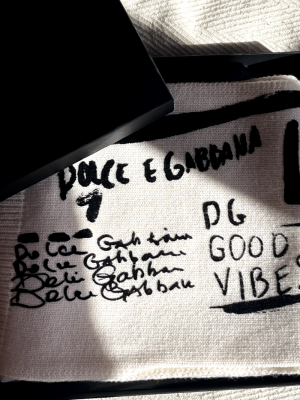 DOLCE E GABBANA
DG
GOOD
VIBES
Dolce Gabbana
Dolce Gabbana
Dolce Gabban
Dolce Gabbana